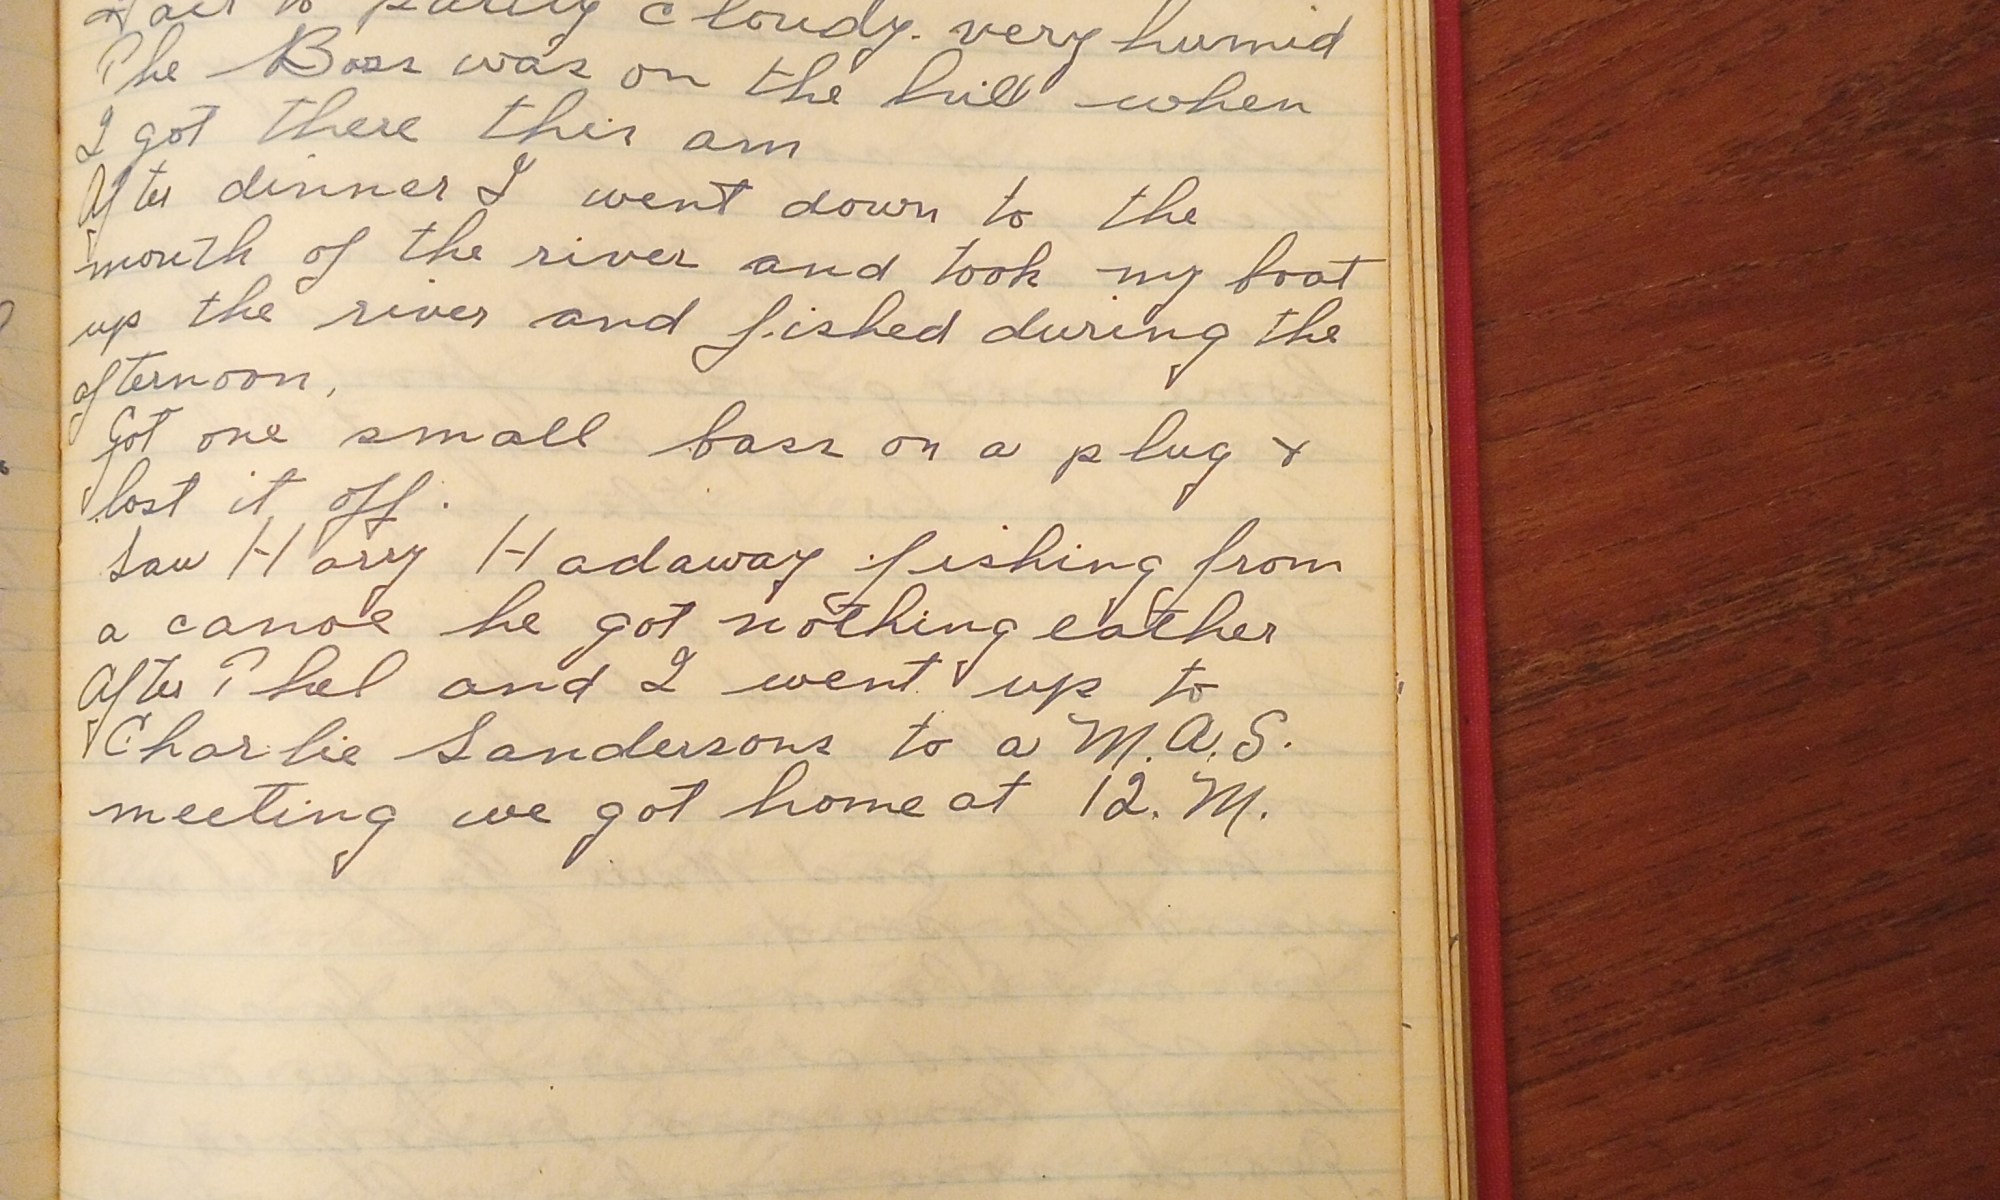 Fair to partly cloudy. very humid
The Boss was on the hill when
I got there this am
After dinner I went down to the
mouth of the river and took my boat
up the river and fished during the
afternoon,
Got one small bass on a plug &
lost it off.
Saw Harry Hadaway fishing from
a canoe he got nothing eather
After Thel and I went up to
Charlie Sandersons to a M.A.S.
meeting we got home at 12. M.